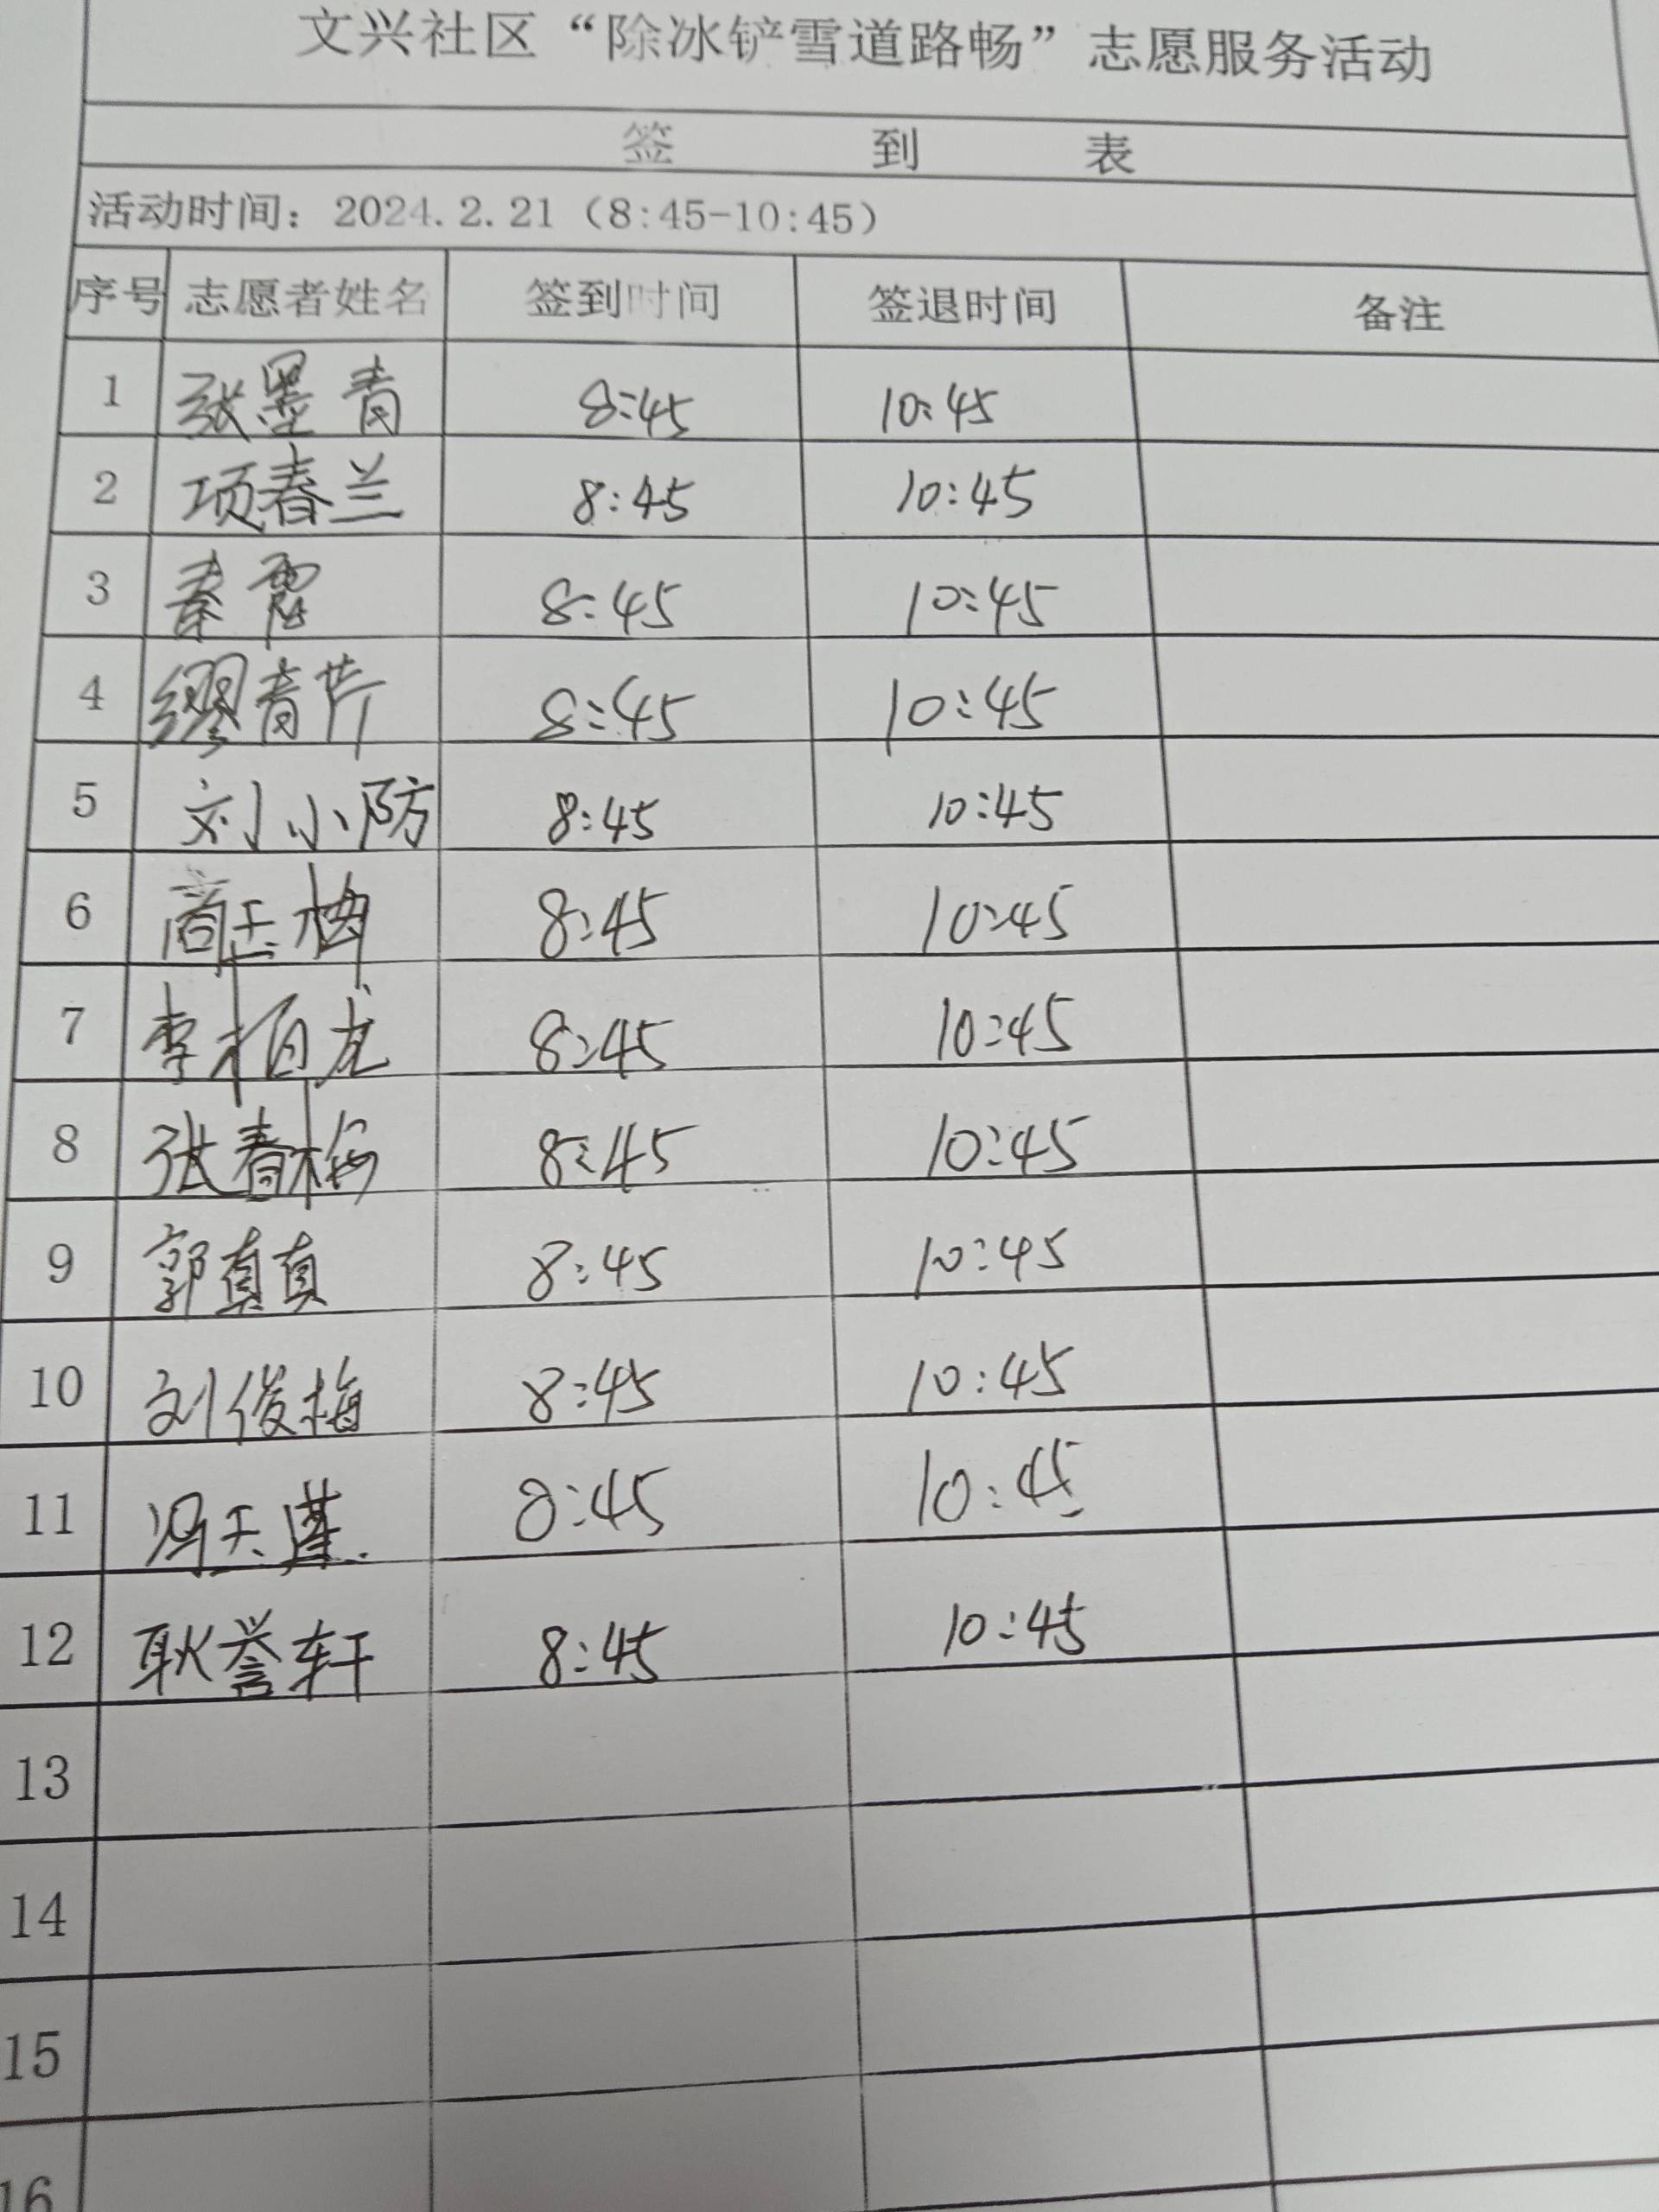 文兴社区“除冰铲雪道路畅”志愿服务活动
签 到 表
活动时间：2024.2.21（8:45-10:45）
序号 志愿者姓名 签到时间 签退时间 备注
1 张墨青 8:45 10:45
2 项春兰 8:45 10:45
3 秦 8:45 10:45
4 缪青芹 8:45 10:45
5 刘小防 8:45 10:45
6 商玉梅 8:45 10:45
7 李柏龙 8:45 10:45
8 张春梅 8:45 10:45
9 郭真真 8:45 10:45
10 刘俊梅 8:45 10:45
11 冯天瑾 8:45 10:45
12 耿誉轩 8:45 10:45
13
14
15
16